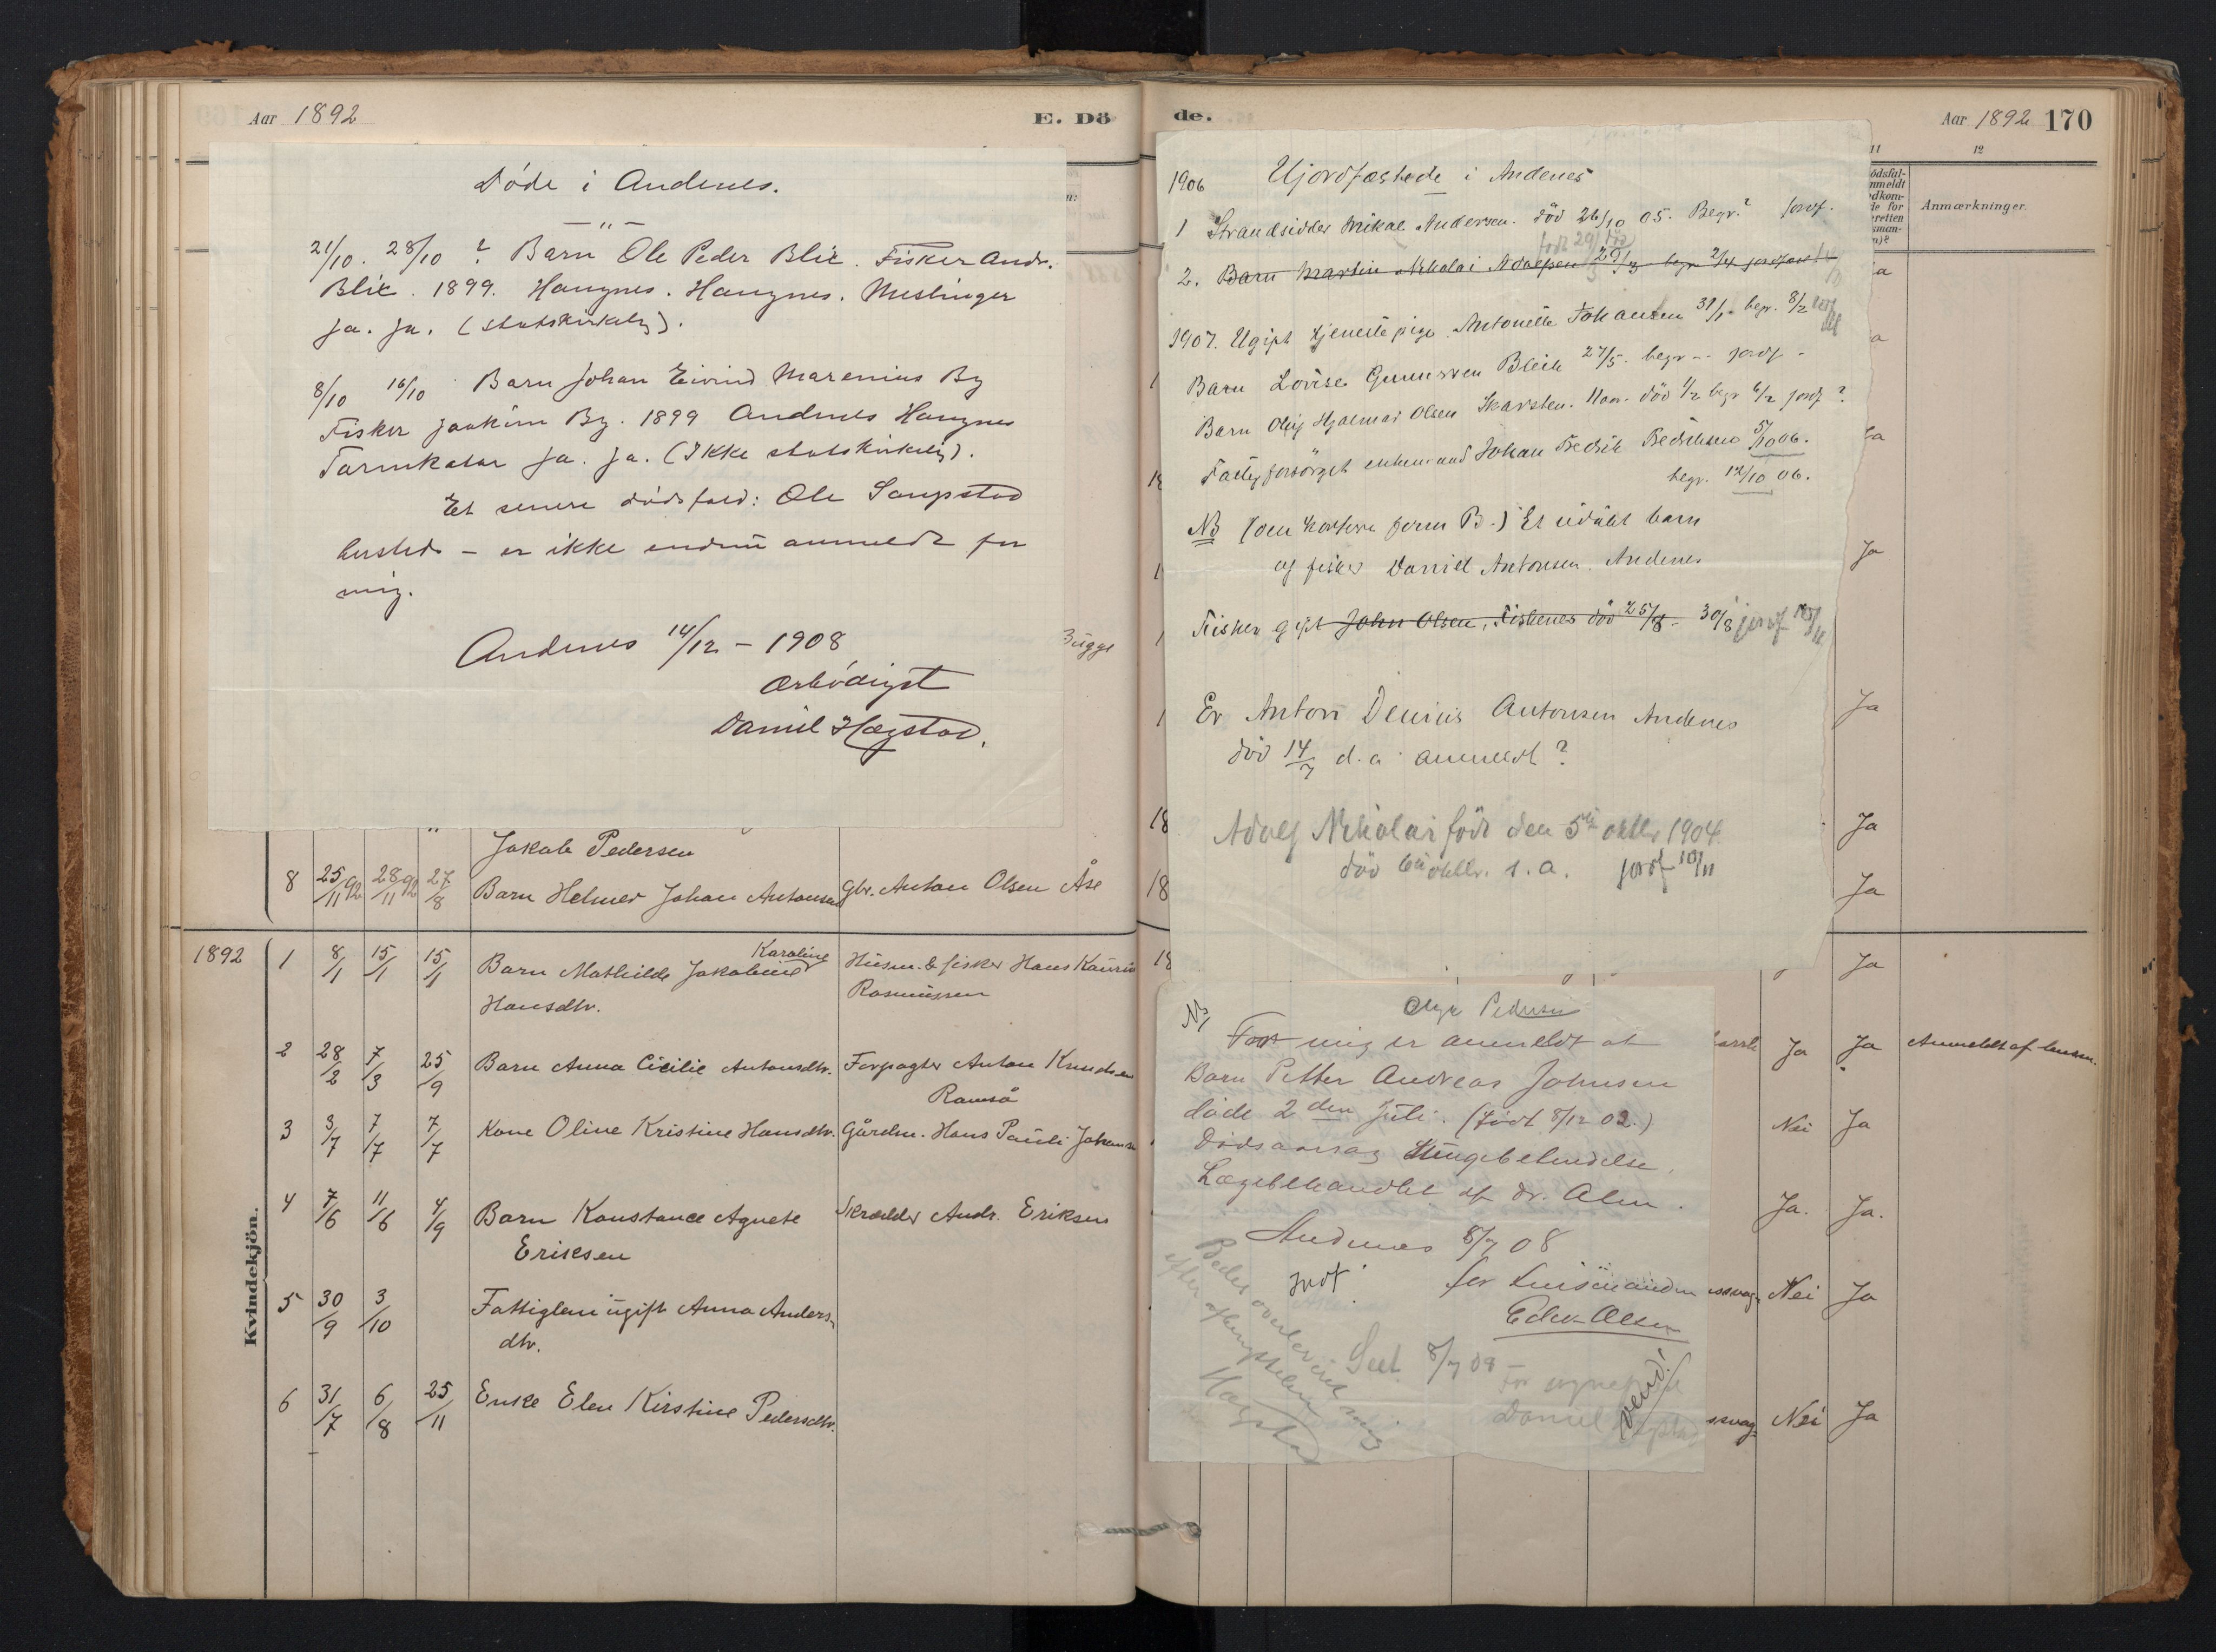 Aar 1892
E. Dö
Döde i Andenes.
— " —
21/10. 28/10 ? Barn Ole Peder Blix. Fisker Andr.
Blix. 1899. Haugnes. Haugnes. Meslinger
ja. ja. (statskirkelig).
8/10 16/10 Barn Johan Eivind Marenius By
Fisker Joakim By. 1899 Andenes Haugnes
Tarmkatar ja. ja. (Ikke statskirkelig).
Et senere dödsfald: Ole
– er ikke endnu anmeldt for
mig.
Andenes 14/12 - 1908
Ærbödigst
Daniel Hægstad.
Bügge
Jakob Pedersen
8 25/11 92 28/11 92 27/8 Barn Helmer Johan Antonsen Gbr. Anton Olsen Åse
Kvindekjön.
1892 1 8/1 15/1 15/1 Barn Mathilde Jakobine Karoline Husm. & fisker Hans Kaurin
Hansdtr. Rasmussen
2 28/2 7/3 25/9 Barn Anna Cicilie Antonsdtr. Forpagter Anton Knudsen
Ramså
3 3/7 7/7 7/7 Kone Oline Kristine Hansdtr. Gårdm. Hans Pauli Johansen
4 7/6 11/6 4/9 Barn Konstance Agnete Skrædder Andr. Eriksen
Eriksen
5 30/9 3/10 Fattiglem ugift Anna Anders-
dtr.
6 31/7 6/8 25/11 Enke Elen Kirstine Pedersdtr.
de.
Aar 1892 170
11 12
Anmærkninger.
1906 Ujordfæstede i Andenes
1 Strandsidder Mikal Andersen. död 26/10 05. Begr.? jordf.
2. Barn Martin Nikolai Adolfsen 29/3 begr 2/4
1907. Ugift tjenestepige Antonette Johansen 31/1 begr. 8/2
Barn Lovise Gunersen Bleik 27/5. begr -- jordf -
Barn Oluf Hjalmar Olsen Skarsten. död 1/2 begr 6/2 jordf?
Fattigforsörget enkemand Johan Fredrik Fredriksen 5/10 06.
begr. 12/10 06.
NB Et udöbt barn
af fisker Daniel Antonsen. Andenes
Fisker gift John Olsen, Fiskenes död 25/8 - 30/8 jordf
Er Anton Denius Antonsen Andenes
död 14/7 d.a anmeldt?
Adolf Nikolai född den 5te oktbr 1904.
död oktbr. s.a. jordf
Olga Pedersen
NB
For mig er anmeldt at
Barn Petter Andreas Johnsen
döde 2den juli. (födt 8/12 02.)
Dödsaarsag
Lægebehandlet af dr. Alm.
Andenes 8/7 08
jordf. for lensmanden
Edv. Olsen
Seet. 8/7 08
Daniel
vend!
Hægstad
Ja
Ja
Ja
Ja
Ja
Ja Ja Anmeldt af lensm.
Nei Ja
Ja. Ja.
Nei Ja
Nei Ja